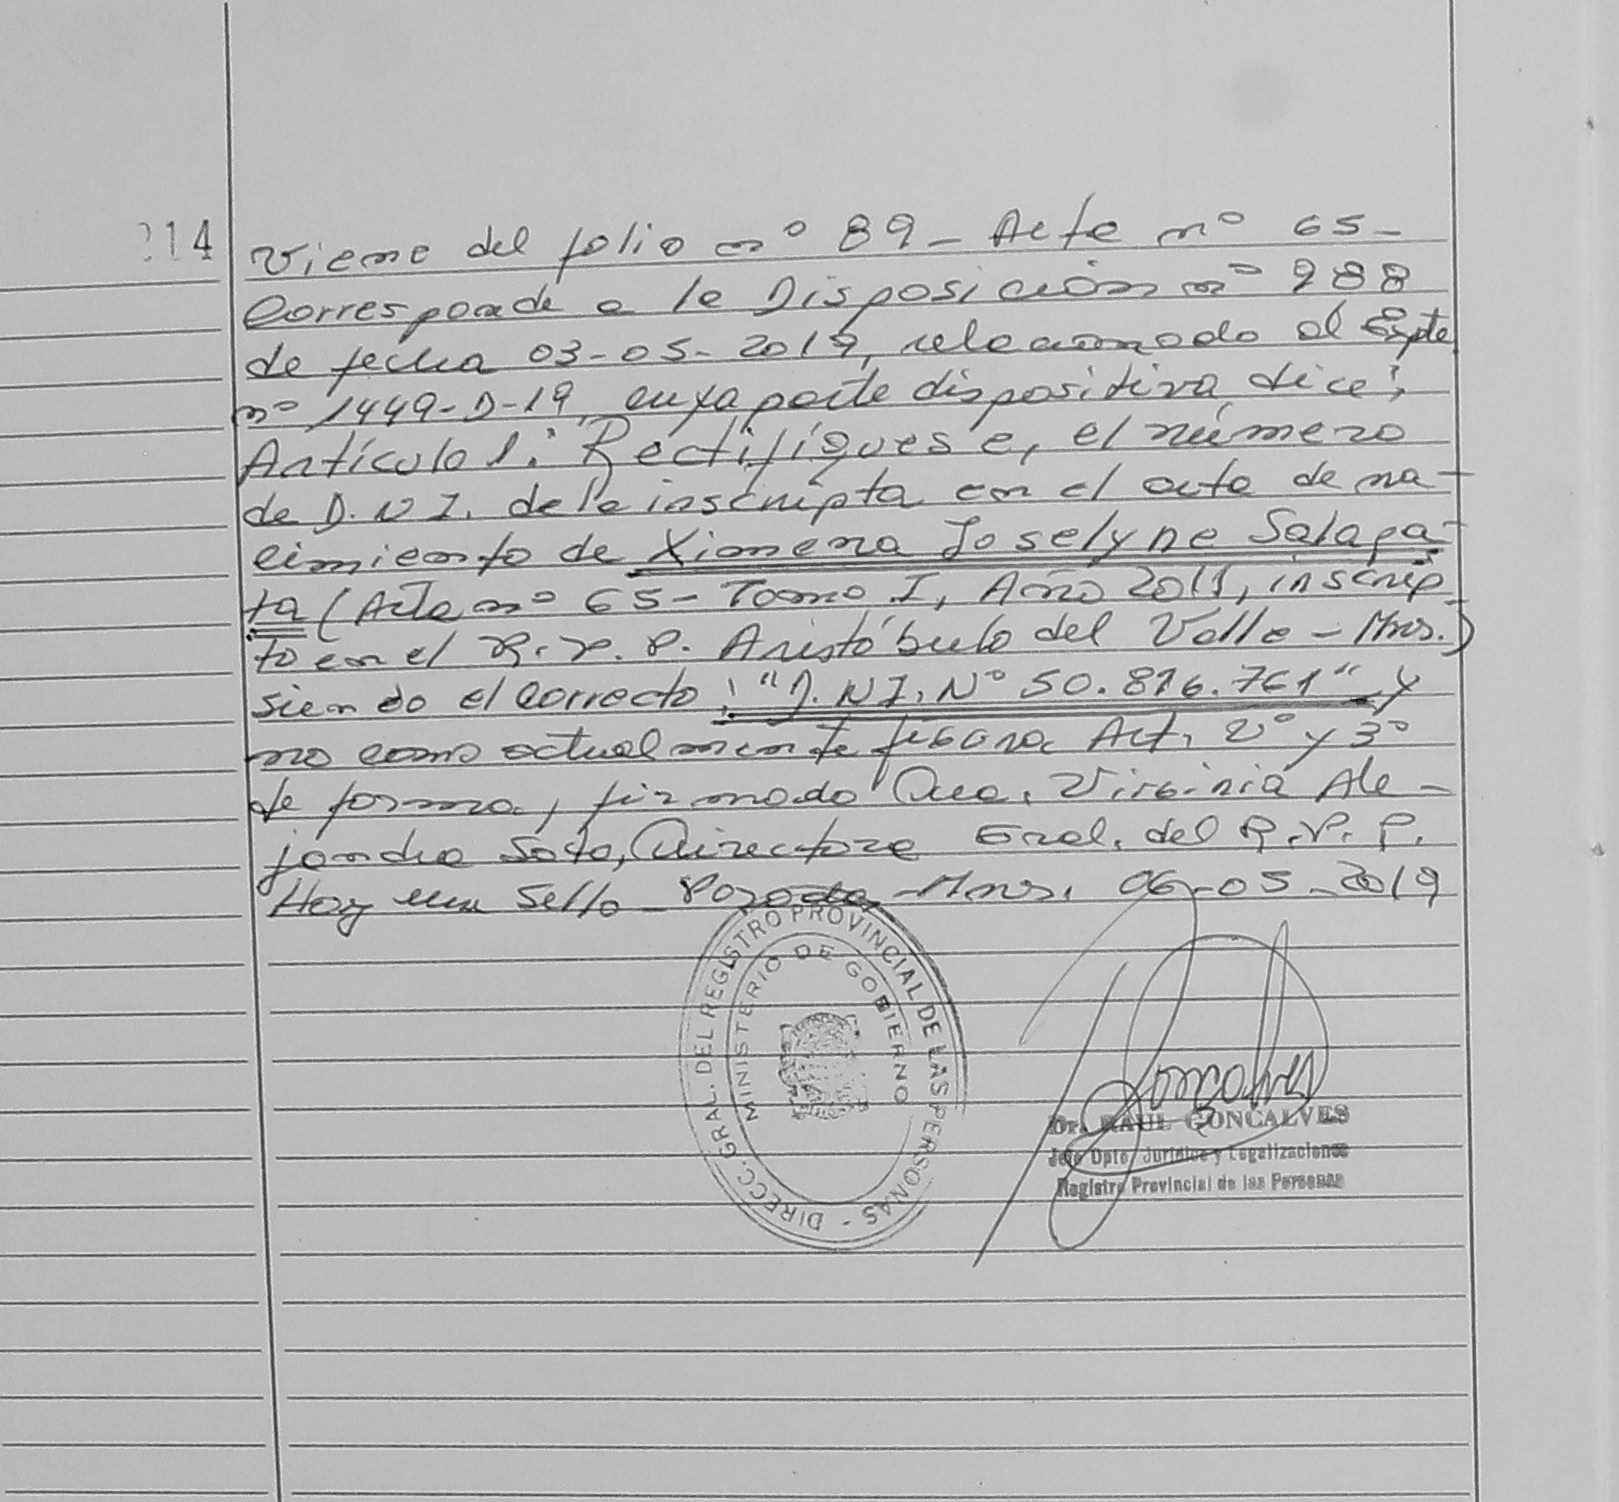 214
Viene del folio nº 89 - Acta nº 65 -
Corresponde a la Disposición nº 988
de fecha 03-05-2019, relacionado al Expte
nº 1449-D-19, cuya parte dispositiva dice:
Artículo 1: Rectifíquese, el número
de D.N.I. de la inscripta en el acta de na-
cimiento de Ximena Joselyne Salapa-
ta (Acta nº 65 - Tomo I, Año 2011, inscrip
to en el R.P.P. Aristóbulo del Valle - Mnes.)
siendo el correcto: "D.N.I. Nº 50.816.761" y
no como actualmente figura Art. 2º y 3º
de forma, firmado Dra. Virginia Ale-
jandra Soto, Directora Gral. del R.P.P.
Hay un sello - Posadas - Mnes. 06-05-2019
DIRECC. GRAL. DEL REGISTRO PROVINCIAL DE LAS PERSONAS -
MINISTERIO DE GOBIERNO
Gonçalves
Dr. RAUL GONCALVES
Jefe Dpto. Jurídico y Legalizaciones
Registro Provincial de las Personas